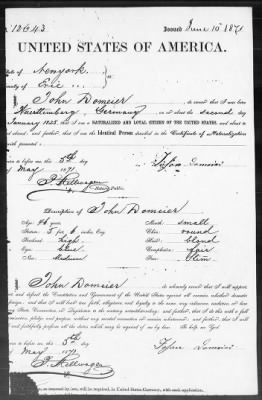 12643 Issued June 10 1871
UNITED STATES OF AMERICA.
of Newyork
of Erie
I, John Domeier, do swear that I was born
Wuerttemberg, Germany on or about the second day
January 1825, that I am a NATURALIZED AND LOYAL CITIZEN OF THE UNITED STATES, and about
abroad; and further, that I am the Identical Person described in the Certificate of Naturalization
herewith presented
to before me, this 5th day
May 1871
Description of John Domeier
Age: 46 years Mouth: small
Stature: 5 feet 6 inches Chin: round
Forehead: high Hair: blond
Eyes: blue Complexion: fair
Nose: Medium Face: Slim
I, John Domeier, do solemnly swear that I will support
and defend the Constitution and Government of the United States against all enemies, whether domestic
foreign; and that I will bear true faith, allegiance, and loyalty to the same, any ordinance, resolution or law
any State, Convention, or Legislature to the contrary notwithstanding; and further, that I do this with a full
determination, pledge and purpose, without any mental reservation or evasion whatsoever; and further, that I will
and faithfully perform all the duties which may be required of me by law. So help me God.
to before me, this 5th
day May 1871
as imposed by law, will be required, in United States Currency, with each application.